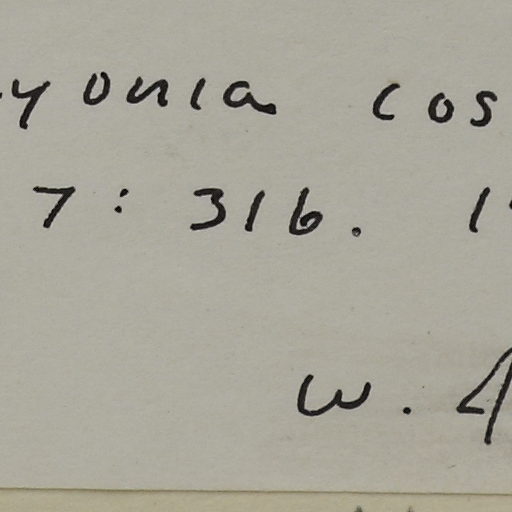 yonia cos
7: 316. 1
W. A